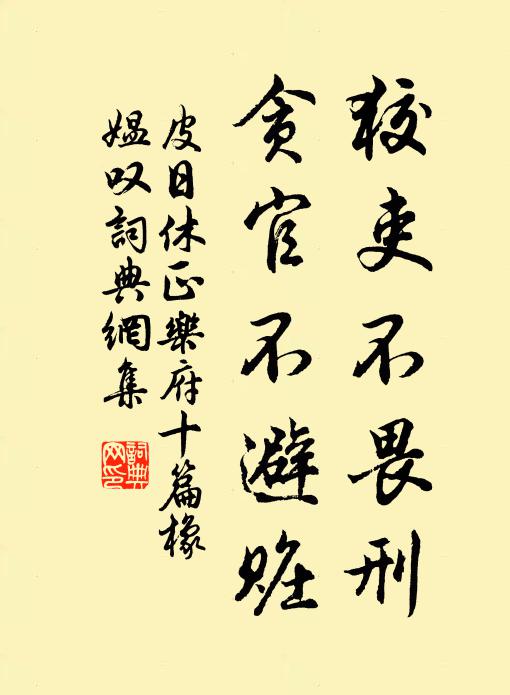 狡吏不畏刑
貪官不避赃
皮日休正樂府十篇橡
媼叹詞典網集
詞典網印